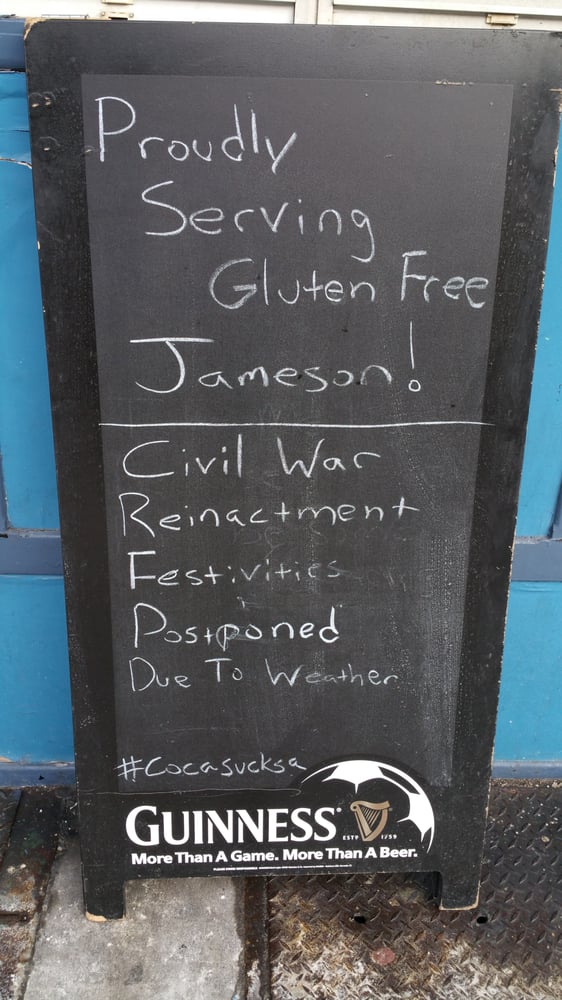 Proudly
Serving
Gluten Free
Jameson!
Civil War
Reinactment
Festivities
Postponed
Due To Weather
#Cocasucksa
GUINNESS
ESTD 1759
More Than A Game. More Than A Beer.